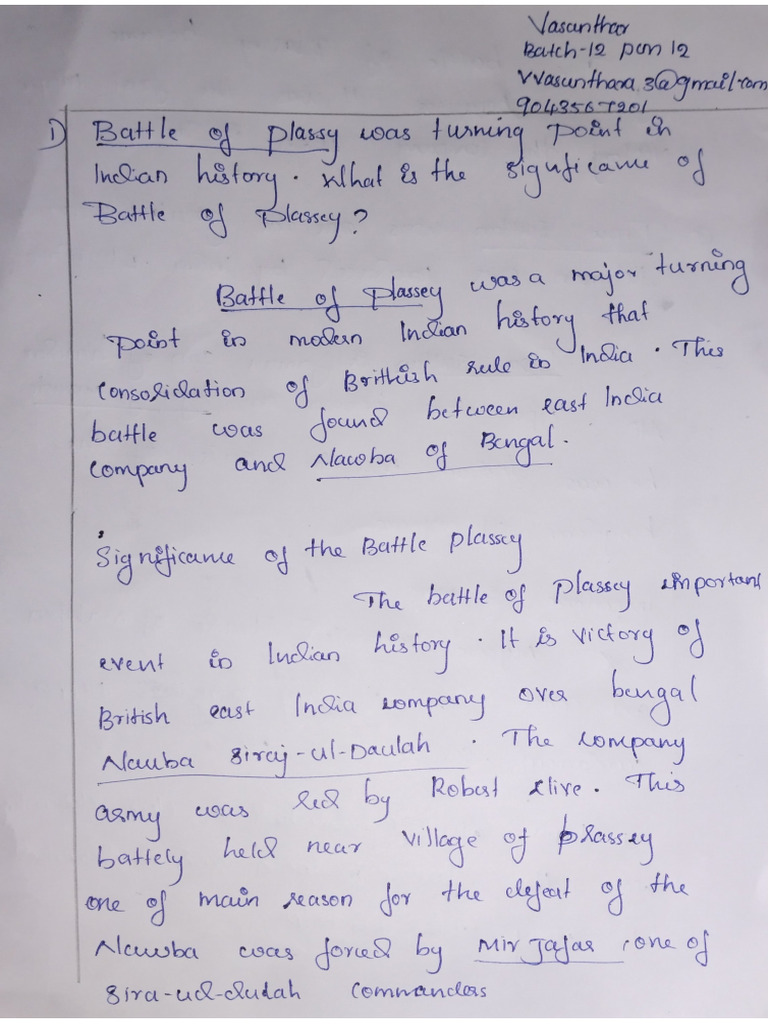 Vasanthaa
Batch-12 pcm 12
vvasunthara.3@gmail.com
9043567201
1) Battle of plassy was turning point in
Indian history. What is the significance of
Battle of Plassey?
Battle of Plassey was a major turning
point in modern Indian history that
consolidation of Brithish rule in India. This
battle was found between east India
company and Nawoba of Bengal.
Significance of the Battle plassey
The battle of Plassey important
event in Indian history. It is victory of
British east India company over bengal
Nawba Siraj-ul-Daulah. The company
army was led by Robert clive. This
battely held near village of plassey
one of main reason for the defeat of the
Nawba was forced by Mir Jafar, one of
Sira-ud-dulah commanders